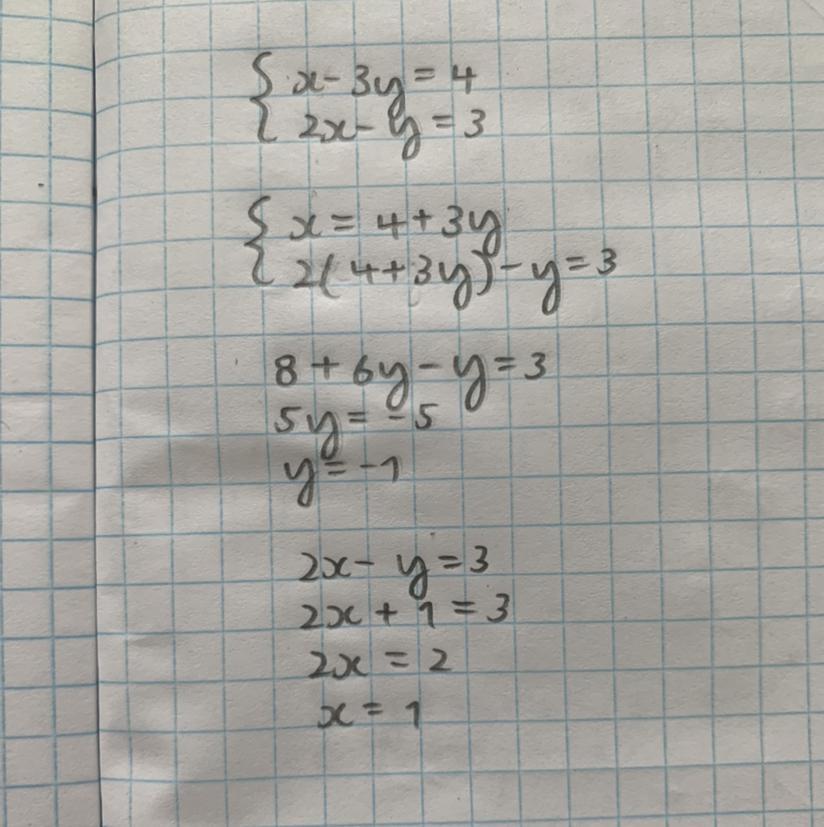 { x - 3y = 4
2x - y = 3
{ x = 4 + 3y
2(4 + 3y) - y = 3
8 + 6y - y = 3
5y = -5
y = -1
2x - y = 3
2x + 1 = 3
2x = 2
x = 1